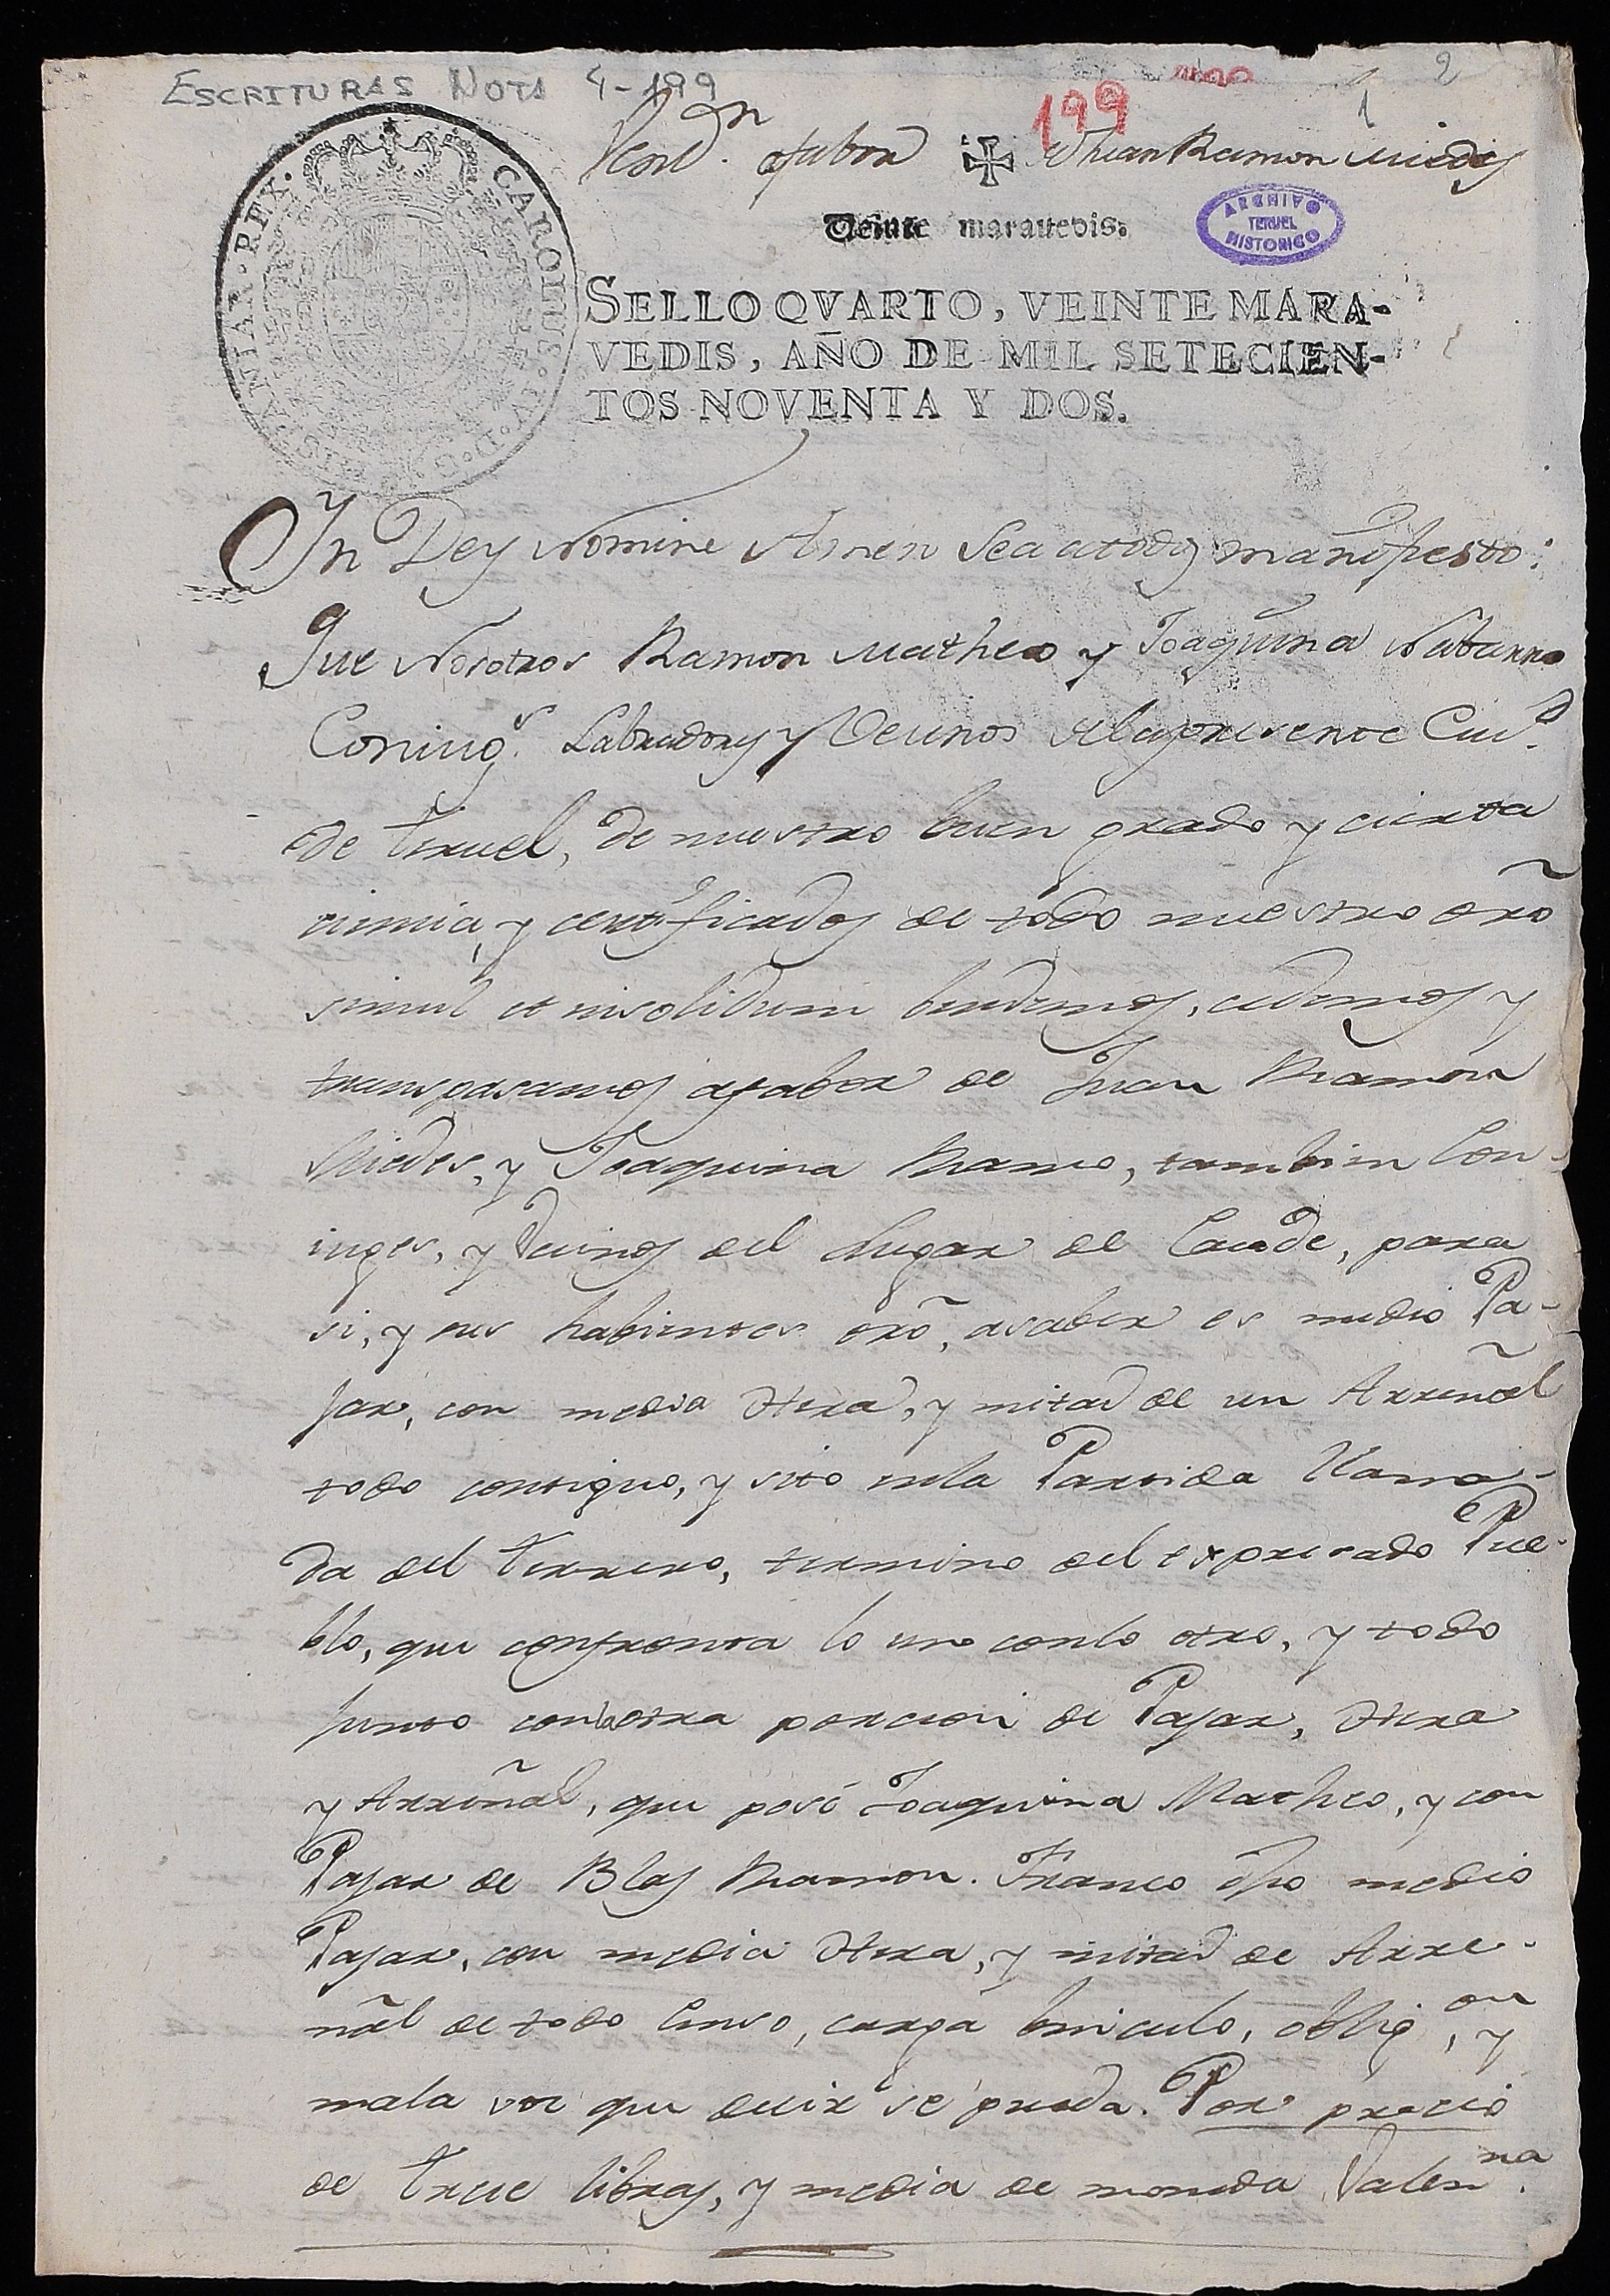 ESCRITURAS Nots 4-199
199
1 2
1
Vend.on afabor ✠ de Juan Ramon Miedes
Veinte marauedis.
ARCHIVO
TERUEL
HISTORICO
CAROLUS · IV · D · G · HISPANIAR · REX ·
SELLO QVARTO, VEINTE MARA-
VEDIS, AÑO DE MIL SETECIEN-
TOS NOVENTA Y DOS.
In Dey Nomine Amen Sea atodos manifiesto:
Que Nosotros Ramon Matheo y Joaquina Nabarro
Coniug.s Labradores y Vecinos delapresente Ciud.
de Teruel, de nuestro buen grado y cierta
ciencia, y certificados de todo nuestro dro
simul et insolidum bendemos, cedemos y
transpasamos afabor de Juan Ramon
Miedes, y Joaquina Ramo, tambien Con-
iuges, y Vecinos del Lugar de Caude, para
si, y sus habientes dro, asaber es medio Pa-
jar, con media Hera, y mitad de un Arreñal
todo contiguo, y sito enla Partida llama-
da del Terrero, termino del expresado Pue-
blo, que confronta lo uno conlo otro, y todo
junto conlaotra porcion de Pajar, Hera
y Arreñal, que posé Joaquina Matheo, y con
Pajar de Blas Ramon. Franco dho medio
Pajar, con media Hera, y mitad de Arre-
ñal de todo Censo, carga binculo, oblig.on, y
mala voz que decir se pueda. Por precio
de trece libras, y media de moneda Valen.na